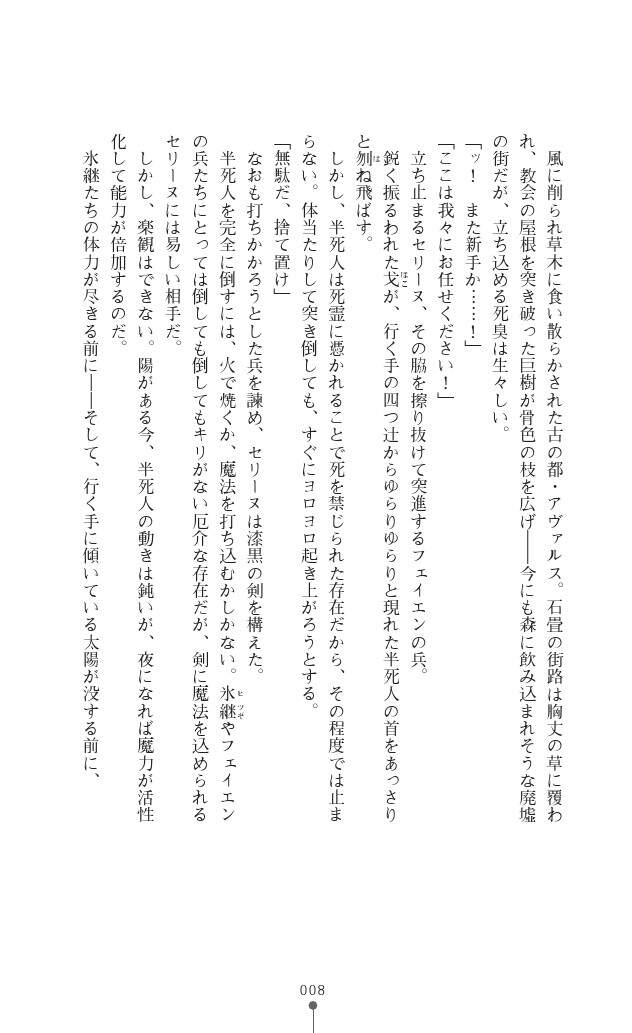 風に削られ草木に食い散らかされた古の都・アヴァルス。石畳の街路は胸丈の草に覆わ
れ、教会の屋根を突き破った巨樹が骨色の枝を広げ――今にも森に飲み込まれそうな廃墟
の街だが、立ち込める死臭は生々しい。
「ッ！　また新手か……！」
「ここは我々にお任せください！」
　立ち止まるセリーヌ、その脇を擦り抜けて突進するフェイエンの兵。
　鋭く振るわれた戈が、行く手の四つ辻からゆらりゆらりと現れた半死人の首をあっさり
と刎ね飛ばす。
　しかし、半死人は死霊に憑かれることで死を禁じられた存在だから、その程度では止ま
らない。体当たりして突き倒しても、すぐにヨロヨロ起き上がろうとする。
「無駄だ、捨て置け」
　なおも打ちかかろうとした兵を諫め、セリーヌは漆黒の剣を構えた。
　半死人を完全に倒すには、火で焼くか、魔法を打ち込むかしかない。氷継やフェイエン
の兵たちにとっては倒しても倒してもキリがない厄介な存在だが、剣に魔法を込められる
セリーヌには易しい相手だ。
　しかし、楽観はできない。陽がある今、半死人の動きは鈍いが、夜になれば魔力が活性
化して能力が倍加するのだ。
　氷継たちの体力が尽きる前に――そして、行く手に傾いている太陽が没する前に、
008